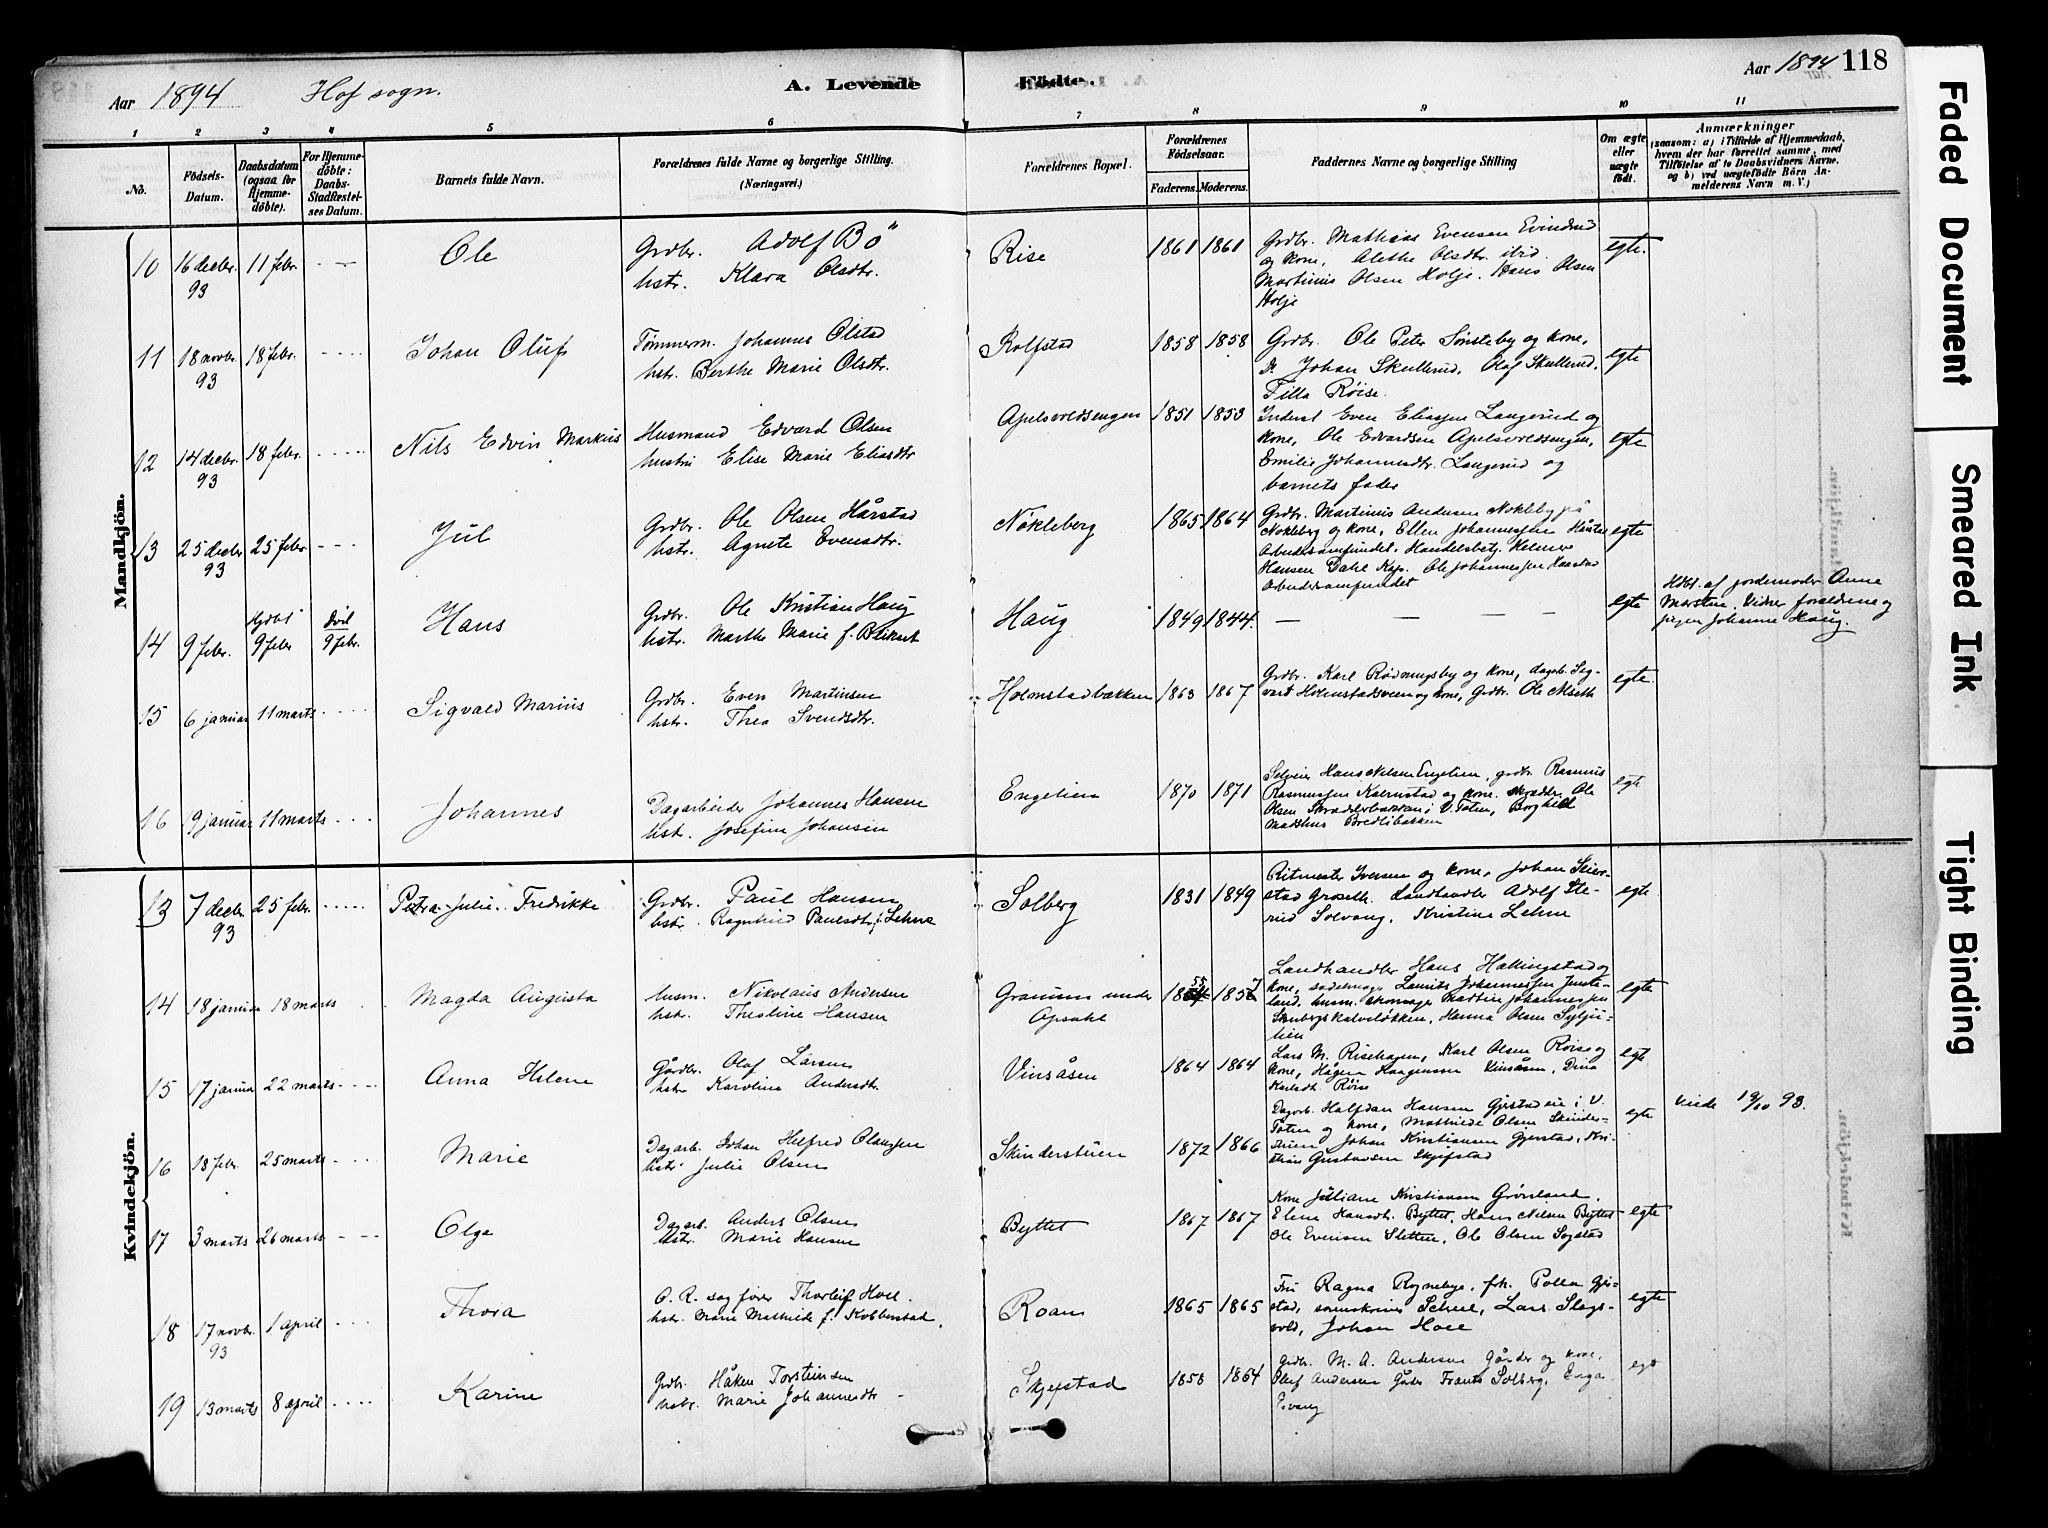 Aar 1894 Hof sogn. A. Levende Födte. Aar 1894 118
1 2 3 4 5 6 7 8 9 10 11
No.
Födsels-Datum.
Daabsdatum (ogsaa for Hjemme-döbte).
For Hjemme-döbte: Daabs-Stadfæstel-ses Datum.
Barnets fulde Navn.
Forældrenes fulde Navne og borgerlige Stilling.
(Næringsvei.)
Forældrenes Bopæl.
Forældrenes Födselsaar.
Faderens. Moderens.
Faddernes Navne og borgerlige Stilling
Om ægte eller uægte födt.
Anmærkninger
(saasom: a) i Tilfælde af Hjemmedaab,
hvem der har forrettet samme, med
Tilföielse af to Daabsvidners Navne,
og b) ved uægtefödte Börn An-
melderens Navn m. V.)
Mandkjön.
10 16 decbr. 93 11 febr. Ole
Grdbr. Adolf Bö
hstr. Klara Olsdtr.
Rise 1861 1861
Grdbr. Mathias Evensen Evindrud
og kone, Alethe Olsdtr. ibid.
Martinius Olsen Holje. Hans Olsen
Holje
egte.
11 18 novbr. 93 18 febr. Johan Oluf
Tømmerm. Johannes Olstad
hstr. Berthe Marie Olsdtr.
Rolfstad 1858 1858
Grdbr. Ole Peter Sønsteby og kone,
Johan Skullerud, Olaf Skullerud,
Tilla Røise.
egte
12 14 decbr. 93 18 febr. Nils Edvin Markus
Husmand Edvard Olsen
hustru Elise Marie Eliasdtr
Apelsvoldsengen 1851 1853
Inderst Even Eliassen Langerud og
kone, Ole Edvardsen Apelsvoldsengen,
Emilie Johannesdtr. Langerud og
barnets fader
egte
13 25 decbr. 93 25 febr. Jul
Grdbr. Ole Olsen Hårstad
hstr. Agnete Evensdtr.
Nøkleberg 1865 1864
Grdbr. Martinius Andersen Nøkleby på
Nøkleberg og kone, Ellen Johannessen
Arbeidersamfundet. Handelsbetj. Helmer
Hansen Dahl Kap. Ole Johannessen Haarstad
Arbeidersamfundet
egte
14 9 febr. Hjdbt 9 febr 9 febr. Hans
Grdbr. Ole Kristian Haug
hstr. Marthe Marie f. Blikset
Haug 1849 1844. — — — —
egte
Hdbt. af jordemoder Anne
Marsten. Vidner forældrene og
pigen Johanne Haug.
15 6 januar 11 marts Sigvald Marius
Grdbr. Even Martinsen
hstr. Thea Svendsdtr.
Holmstadbakken 1863 1867
Grdbr. Karl Rødningsby og kone, dagarb. Sig-
vart Holmstadsveen og kone, Grdbr. Ole Alseth
egte.
16 9 januar 11 marts Johannes
Dagarbeider Johannes Hansen
hst. Josefine Johansen
Engelien 1870 1871
Selveier Hans Nilsen Engelien, grdbr. Rasmus
Rasmussen Kalrustad og kone. skrædder. Ole
Olsen Skrædderbakken i V. Toten, Borghild
Madshus Bredlibakken
egte
Kvindekjön.
13 7 decbr. 93 25 febr. Petra Julie Fredrikke
Grdbr. Paul Hansen
hstr. Ragnhild Paulsdtr f. Lehne
Solberg 1831 1849
Ritmester Iversen og kone, Johan Skier-
stad Landhandler Adolf Ste-
rud Solvang, Kristine Lehne
egte
14 18 januar 18 marts Magda Augusta
husm. Nikolaus Andersen
hstr. Thestine Hansen
Granum under
Apsahl
1855 1857
Landhandler Hans Hallingstad og
kone, sadelmag. Laurits Johannessen Jenste-
land, husm. skomager Martin Johannessen
Stenbergskalveløkken, Hanna Olsen Syljuli-
lien
egte
15 17 januar 22 marts Anna Helene
Gårdbr. Olaf Larsen
hstr Karoline Andersdtr.
Vinsåsen 1864 1864
Lars M. Risehagen, Karl Olsen Røise og
kone, Hågen Haagensen Vinsåsen, Dina
Karlsdt. Røise
egte
16 13 febr. 25 marts Marie
Dagarb. Johan Helfred Olaussen
hstr. Julie Olsen
Skinderstuen 1872 1866
Dagarb. Halfdan Hansen Gjerstadeie i V.
Toten og kone, Mathilde Olsen Skinder-
stuen Johan Kristiansen Gjerstad, Kri-
stian Gustavsen Skjefstad
egte
Viede 19/10 93.
17 3 marts 26 marts Olga
Dagarb. Anders Olsen
hstr. Marie Hansen
Byttet 1867 1867
Kone Juliane Kristiansen Grønland,
Eline Hansdtr. Byttet, Hans Nilsen Byttet
Ole Evensen Sletten, Ole Olsen Sogstad
egte
18 17 novbr. 93 1 april Thora
O. R. sagfører Thorleif Hoel
hstr. Marie Mathilde f. Kobberstad.
Roan 1865 1865
Fru Ragna Rognebye, frk. Polla Gjes-
tad, sorenskriver Scheel, Lars Slags-
vold, Johan Hoel
egte
19 13 marts 8 april Karine
Grdbr. Håken Torsteinsen
hstr. Marie Johannesdtr
Skjefstad 1858 1864
Grdbr. M. A. Andersen Gårder og kone,
Oluf Andersen Gårder Frants Solberg, Enga
Evang
egte
Faded Document
Smeared Ink
Tight Binding